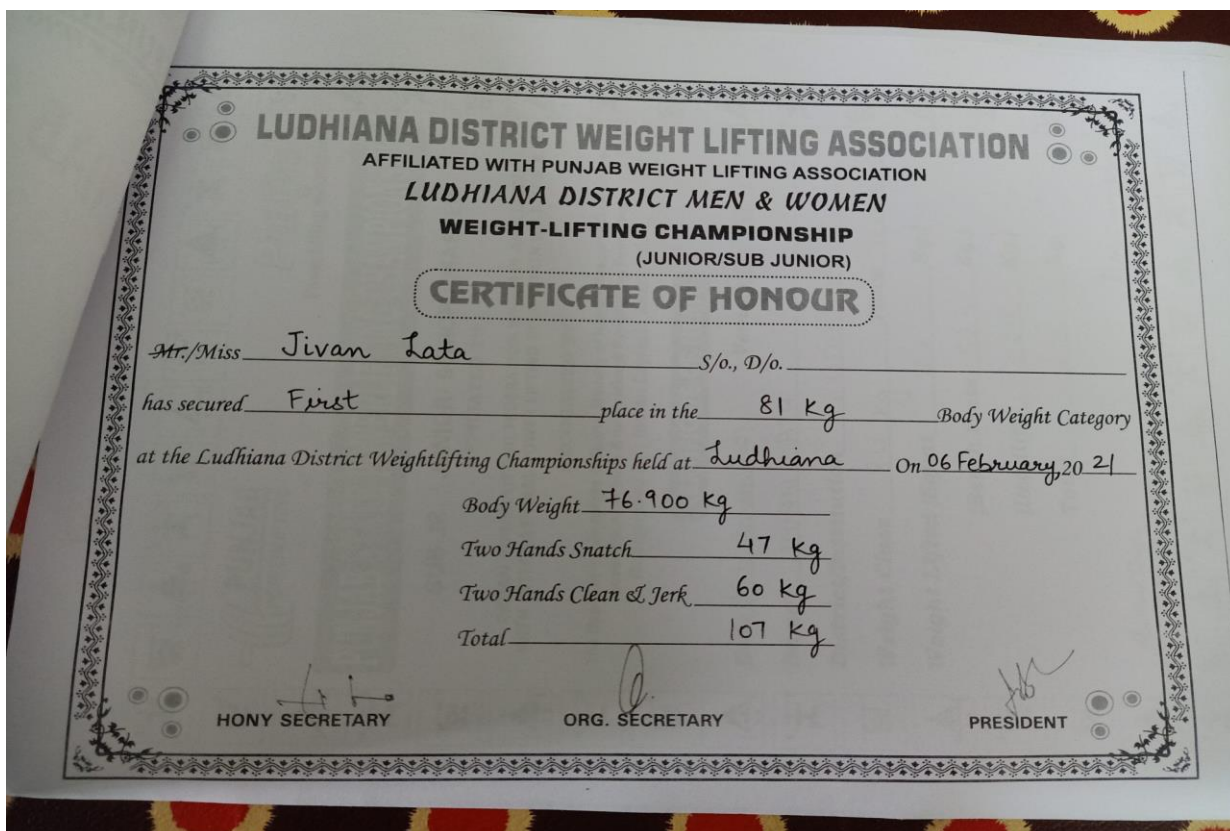 LUDHIANA DISTRICT WEIGHT LIFTING ASSOCIATION
AFFILIATED WITH PUNJAB WEIGHT LIFTING ASSOCIATION
LUDHIANA DISTRICT MEN & WOMEN
WEIGHT-LIFTING CHAMPIONSHIP
(JUNIOR/SUB JUNIOR)
CERTIFICATE OF HONOUR
Mr./Miss Jivan Lata S/o., D/o.
has secured First place in the 81 Kg Body Weight Category
at the Ludhiana District Weightlifting Championships held at Ludhiana On 06 February, 20 21
Body Weight 76.900 Kg
Two Hands Snatch 47 Kg
Two Hands Clean & Jerk 60 Kg
Total 107 Kg
HONY SECRETARY ORG. SECRETARY PRESIDENT